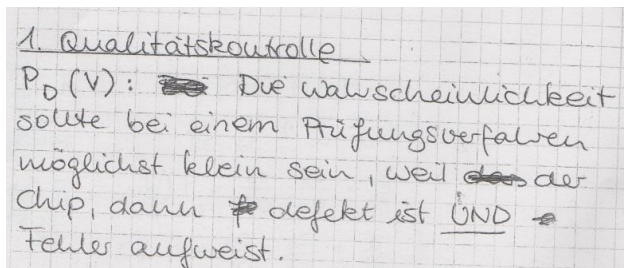 1. Qualitätskontrolle
P_D(V): Die Wahrscheinlichkeit
sollte bei einem Prüfungsverfahren
möglichst klein sein, weil der
Chip, dann defekt ist UND
Fehler aufweist.